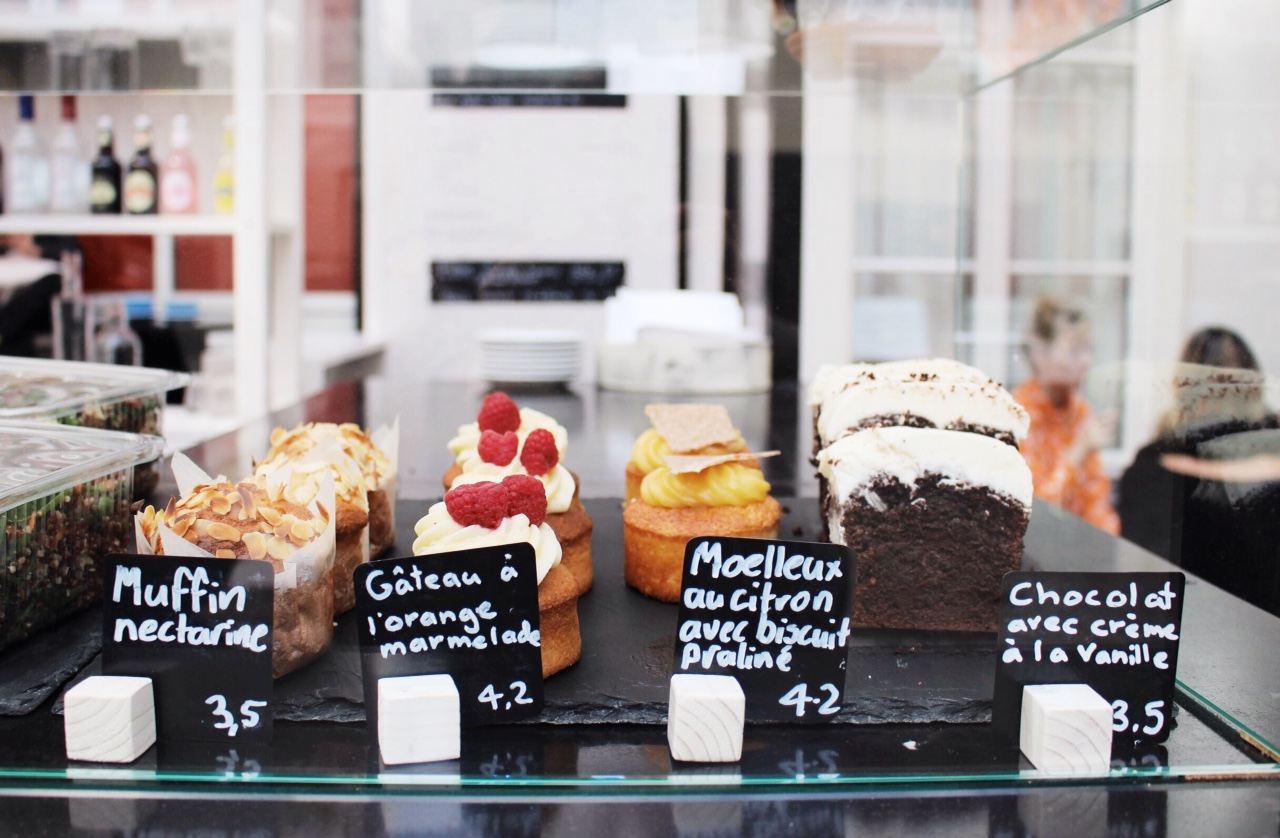 Muffin
nectarine
3,5
Gâteau à
l'orange
marmelade
4,2
Moelleux
au citron
avec biscuit
praliné
4.2
Chocolat
avec crème
à la vanille
3,5